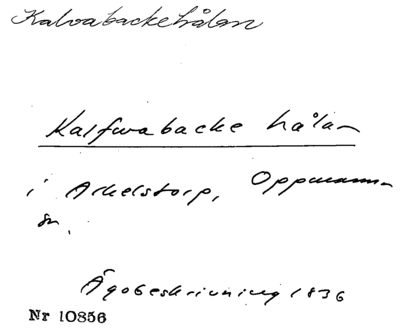 Kalvabackehålan
Kalfwabacke hålan
i Arkelstorp, Oppmanna
sn.
Ägobeskrivning 1836
Nr 10856